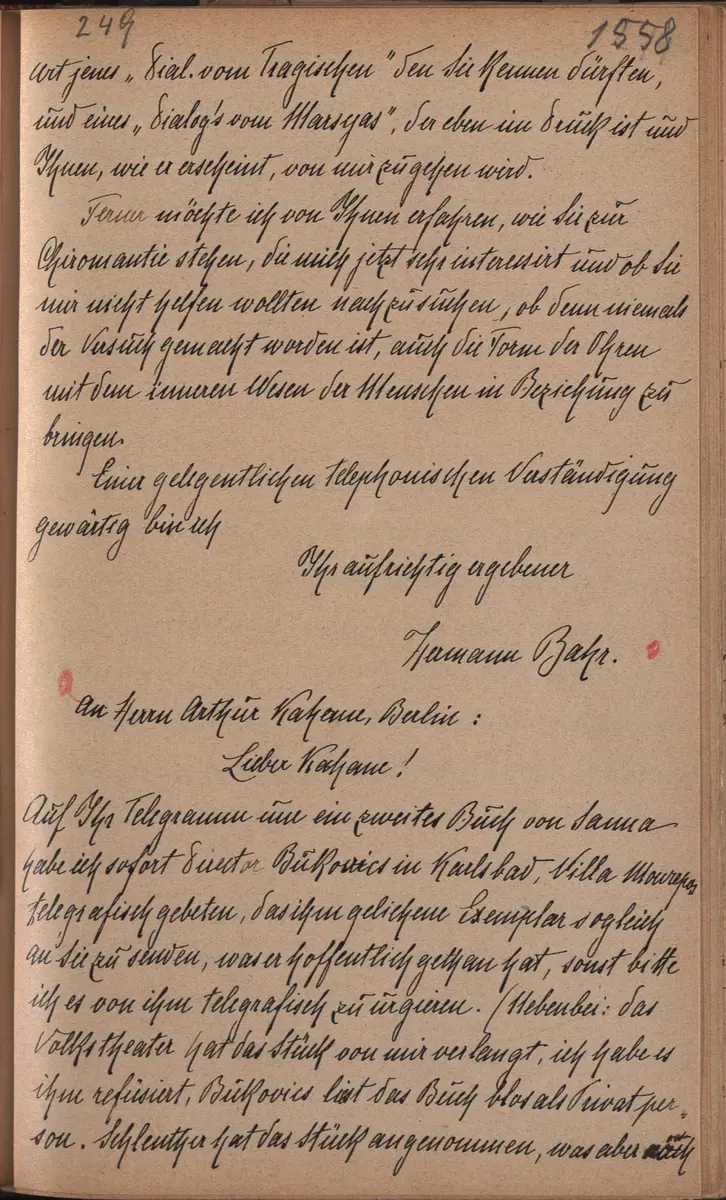 249
1558
Art jenes „Dial. vom Tragischen" den Sie kennen dürften,
und eines „Dialog's vom Marsyas", der eben im Druck ist und
Ihnen, wie er erscheint, von mir zugehen wird.
Ferner möchte ich von Ihnen erfahren, wie Sie zur
Chiromantie stehen, die mich jetzt sehr interessirt und ob Sie
mir nicht helfen wollten nachzusuchen, ob denn niemals
der Versuch gemacht worden ist, auch die Form der Ohren
mit dem inneren Wesen der Menschen in Beziehung zu
bringen.
Einer gelegentlichen telephonischen Verständigung
gewärtig bin ich
Ihr aufrichtig ergebener
Hermann Bahr.
An Herrn Arthur Kahane, Berlin:
Lieber Kahane!
Auf Ihr Telegramm um ein zweites Buch von Sanna
habe ich sofort Director Bukovics in Karlsbad, Villa Monrepos
telegrafisch gebeten, das ihm geliehene Exemplar sogleich
an Sie zu senden, was er hoffentlich gethan hat, sonst bitte
ich es von ihm telegrafisch zu urgieren. (Nebenbei: das
Volkstheater hat das Stück von mir verlangt, ich habe es
ihm refüsiert, Bukovics liest das Buch blos als Privatper-
son. Schlenther hat das Stück angenommen, was aber